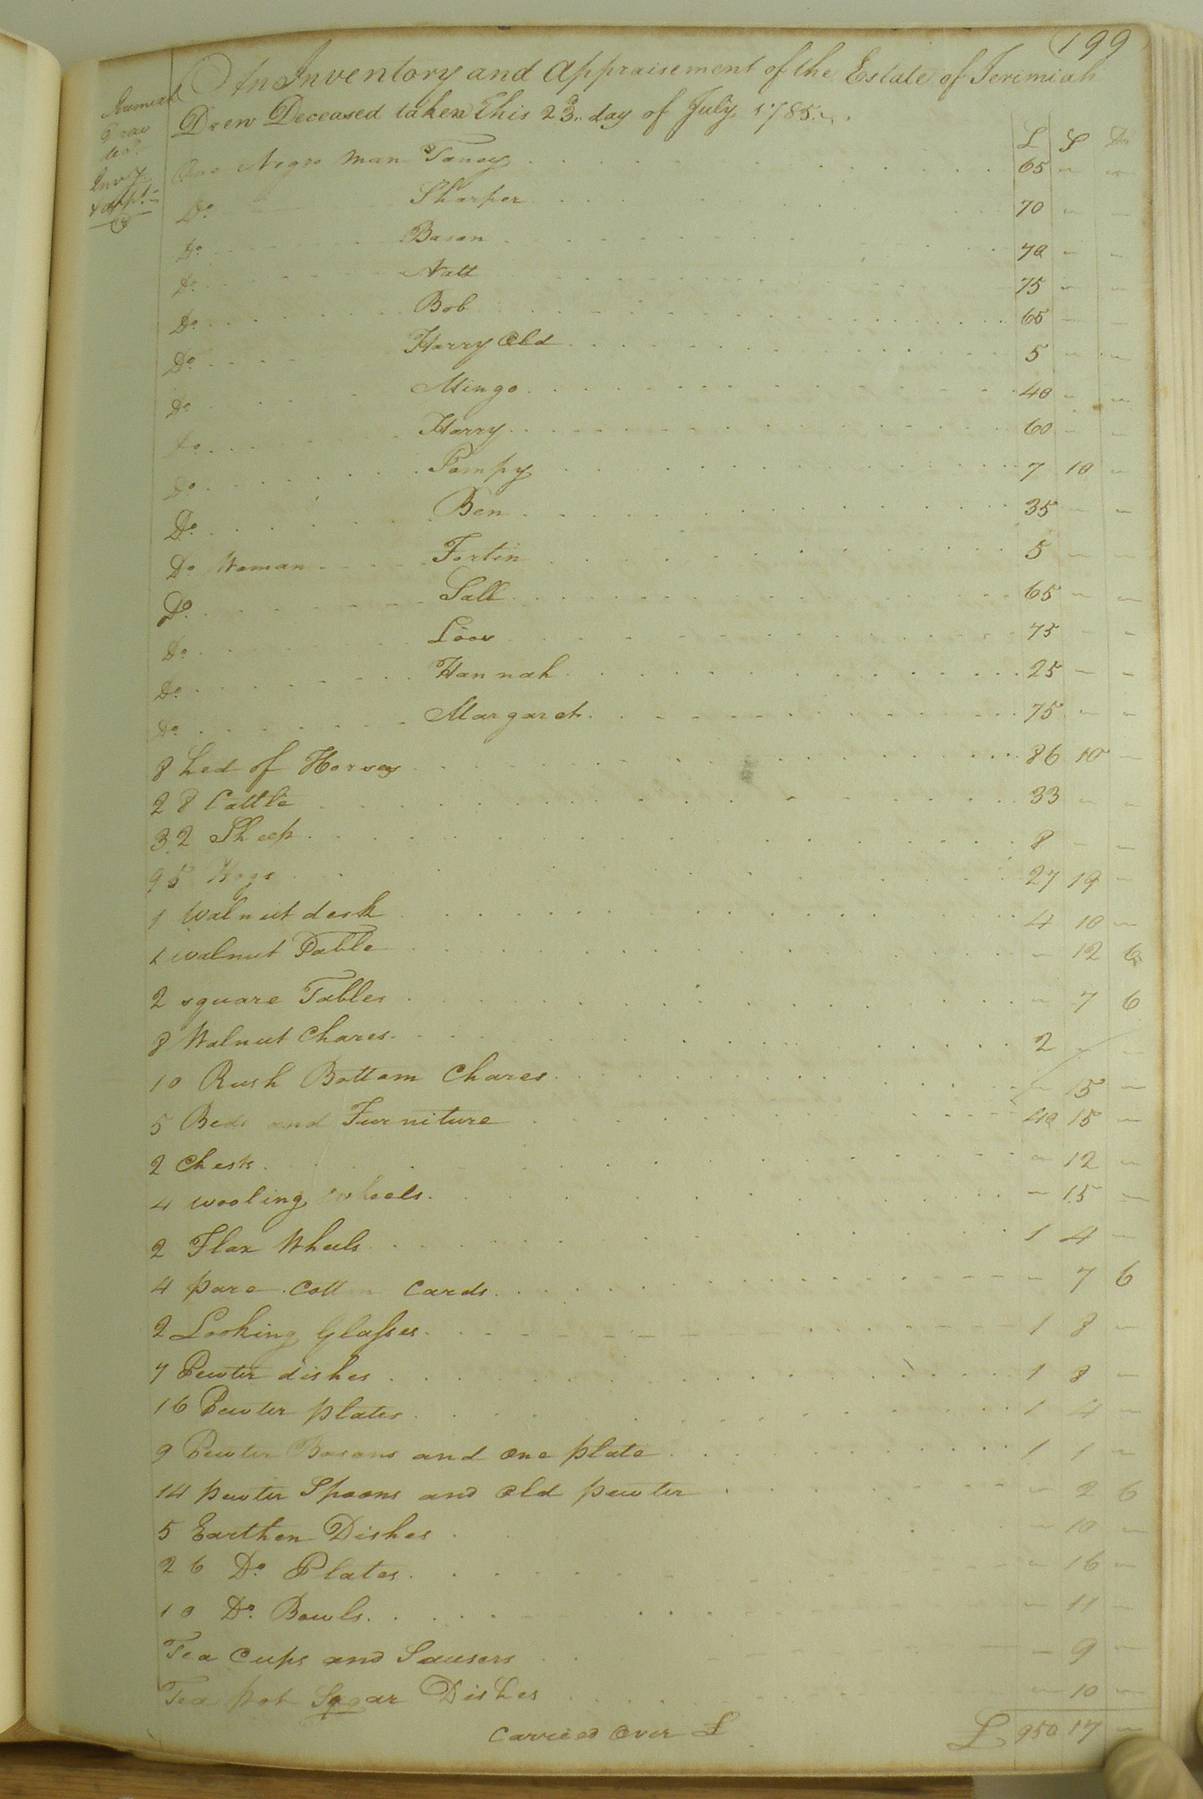 199
An Inventory and Appraisement of the Estate of Jerimiah
Drew Deceased taken this 23d. day of July 1785.
Drew
Decd.
Invy.
& Appt.
£ S D
One Negro man Taney 65 - -
Do Sharper 70 - -
Do Bason 70 - -
Do Natt 75 - -
Do Bob 65 - -
Do Harry Old 5 - -
Do Mingo 40 - -
Do Harry 60 - -
Do Pompy 7 10 -
Do Ben 35 - -
Do Woman Fortin 5 - -
Do Sall 65 - -
Do 75 - -
Do Hannah 25 - -
Do Margaret 75 - -
8 hed of Horses 86 10 -
28 Cattle 33 - -
32 Sheep 8 - -
95 Hogs 27 19 -
1 Walnut desk 4 10 -
1 walnut Table - 12 6
2 square Tables - 7 6
8 Walnut Chares 2 - -
10 Rush Bottom Chares - 15 -
5 Beds and Furniture 40 15 -
2 Chests - 12 -
4 wooling wheels - 15 -
2 Flax Wheels 1 4 -
4 pare Cotton Cards - 7 6
2 Looking Glasses 1 8 -
7 Pewter dishes 1 8 -
16 Pewter plates 1 4 -
9 Pewter Basons and one plate 1 1 -
14 pewter Spoons and old pewter - 2 6
5 Earthen Dishes - 10 -
26 Do Plates - 16 -
10 Do Bowls - 11 -
Tea Cups and Sausers - 9 -
Tea pot Sugar Dishes - 10 -
Carried Over £ £ 950 17 -